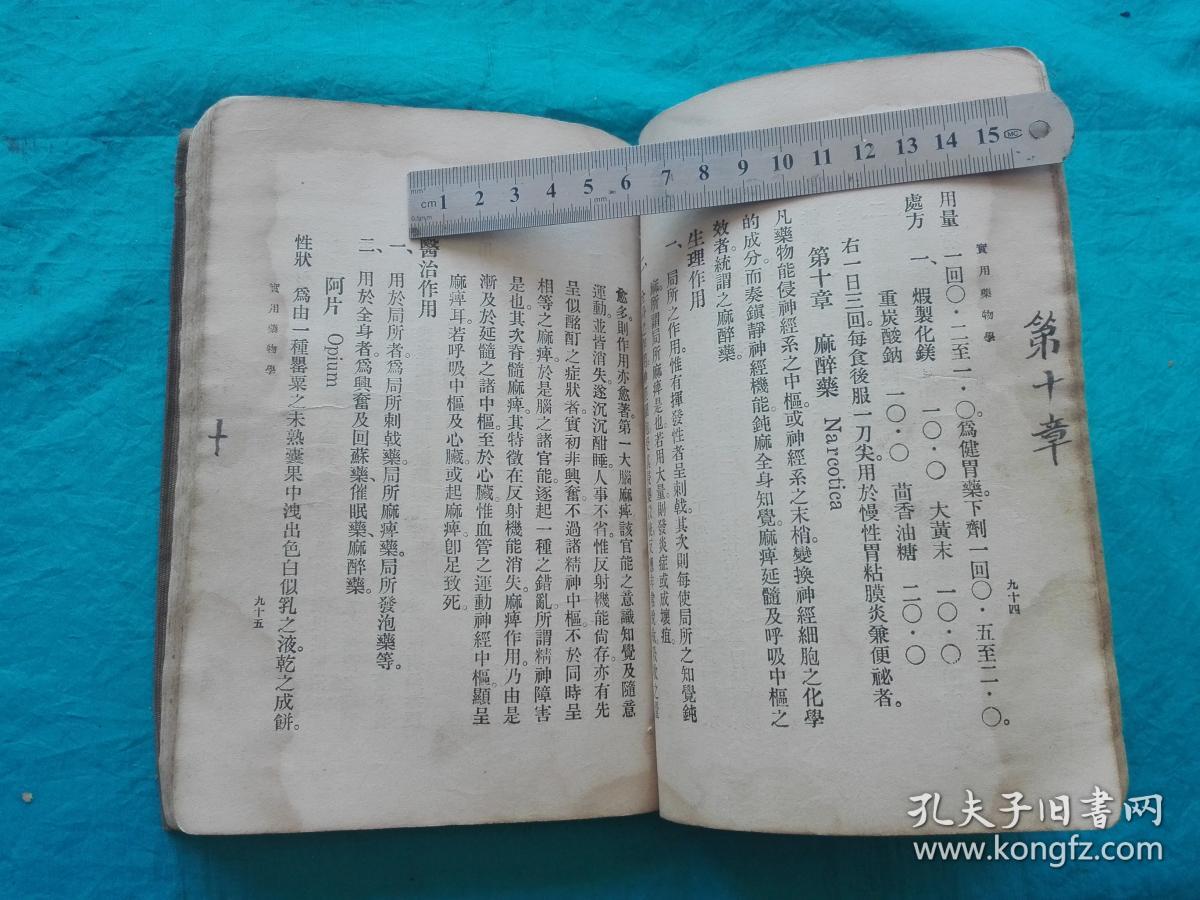 第十章
實用藥物學
九十四
用量　一回〇・二至一・〇爲健胃藥。下劑一回〇・五至二・〇。
處方　一、煆製化鎂　一〇・〇　大黃末　一〇・〇
重炭酸鈉　一〇・〇　茴香油糖　二〇・〇
右一日三回每食後服一刀尖用於慢性胃粘膜炎兼便祕者。
第十章　麻醉藥　Narcotica
凡藥物能侵神經系之中樞或神經系之末梢變換神經細胞之化學
的成分而奏鎭靜神經機能鈍麻全身知覺麻痺延髓及呼吸中樞之
效者統謂之麻醉藥。
生理作用
一、局所之作用。惟有揮發性者呈刺戟。其次則每使局所之知覺鈍
麻。所謂局所麻痺是也。若用大量則發炎症或成壞疽。
愈多則作用亦愈著。第一大腦麻痺該官能之意識知覺及隨意
運動並皆消失遂沉沉酣睡。人事不省。惟反射機能尙存。亦有先
呈似酩酊之症狀者。實初非興奮。不過諸精神中樞不於同時呈
相等之麻痺。於是腦之諸官能。遂起一種之錯亂。所謂精神障害
是也。其次脊髓麻痺。其特徵在反射機能消失。麻痺作用。乃由是
漸及於延髓之諸中樞。至於心臟。惟血管之運動神經中樞。顯呈
麻痺耳。若呼吸中樞及心臟。或起麻痺。卽足致死。
醫治作用
一、用於局所者爲局所刺戟藥。局所麻痺藥。局所發泡藥等。
二、用於全身者。爲興奮及回蘇藥、催眠藥、麻醉藥。
阿片　Opium
性狀　爲由一種罌粟之未熟囊果中洩出色白似乳之液。乾之成餅。
實用藥物學
九十五
十
cm 1 2 3 4 5 6 7 8 9 10 11 12 13 14 15 MC
孔夫子旧书网
www.kongfz.com